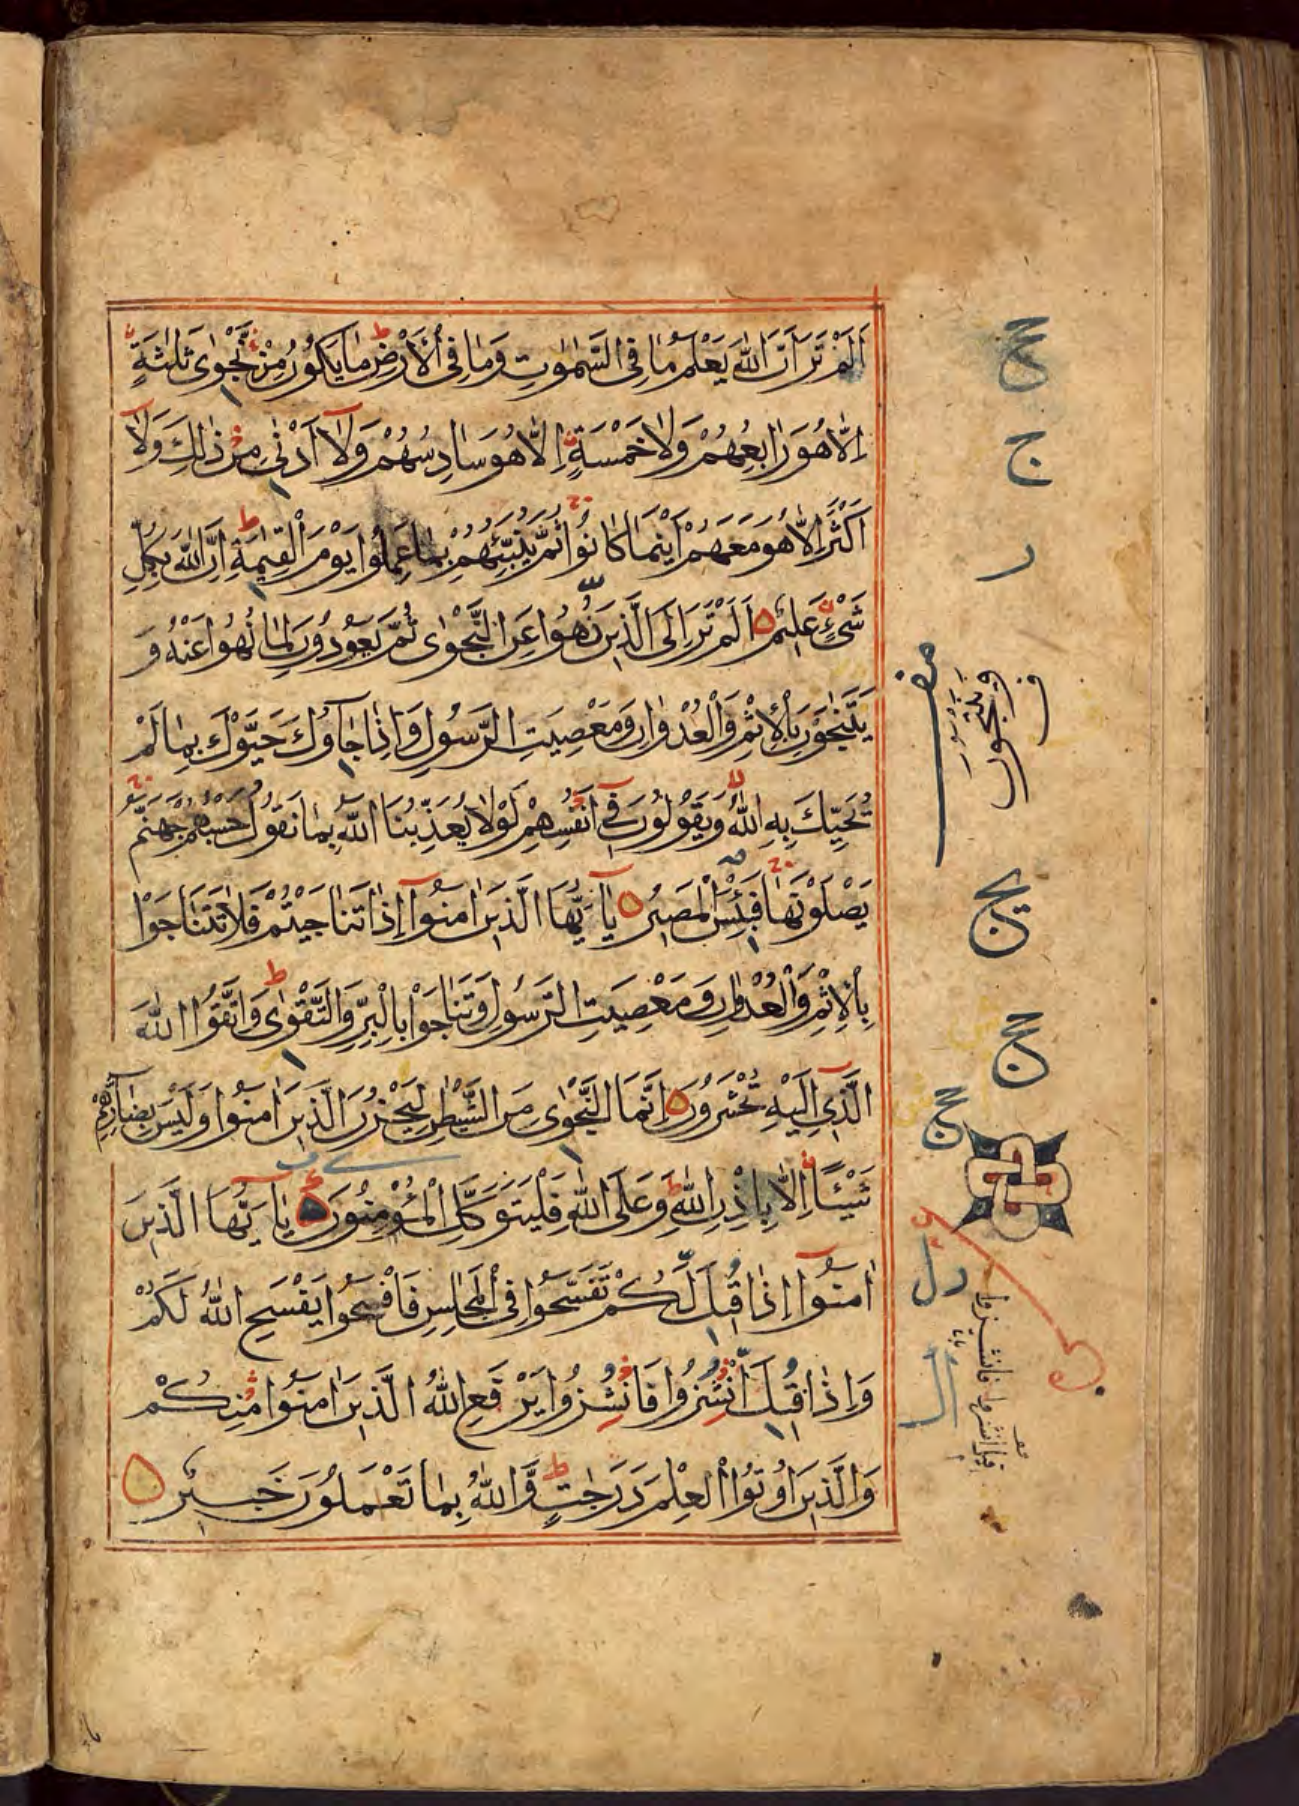 اَلَمْ تَرَ اَنَّ اللّٰهَ يَعْلَمُ مَا فِى السَّمٰوٰتِ وَمَا فِى الْاَرْضِ ط مَا يَكُوْنُ مِنْ نَّجْوٰى ثَلٰثَةٍ
اِلَّا هُوَ رَابِعُهُمْ وَلَا خَمْسَةٍ اِلَّا هُوَ سَادِسُهُمْ وَلَآ اَدْنٰى مِنْ ذٰلِكَ وَلَآ
اَكْثَرَ اِلَّا هُوَ مَعَهُمْ اَيْنَمَا كَانُوْا ج ثُمَّ يُنَبِّئُهُمْ بِمَا عَمِلُوْا يَوْمَ الْقِيٰمَةِ ط اِنَّ اللّٰهَ بِكُلِّ
شَىْءٍ عَلِيْمٌ اَلَمْ تَرَ اِلَى الَّذِيْنَ نُهُوْا عَنِ النَّجْوٰى ثُمَّ يَعُوْدُوْنَ لِمَا نُهُوْا عَنْهُ وَ
يَتَنٰجَوْنَ بِالْاِثْمِ وَالْعُدْوَانِ وَمَعْصِيَتِ الرَّسُوْلِ وَاِذَا جَآؤُكَ حَيَّوْكَ بِمَا لَمْ
يُحَيِّكَ بِهِ اللّٰهُ لا وَيَقُوْلُوْنَ فِىٓ اَنْفُسِهِمْ لَوْلَا يُعَذِّبُنَا اللّٰهُ بِمَا نَقُوْلُ حَسْبُهُمْ جَهَنَّمُ ج
يَصْلَوْنَهَا ج فَبِئْسَ الْمَصِيْرُ يَآ اَيُّهَا الَّذِيْنَ اٰمَنُوْآ اِذَا تَنَاجَيْتُمْ فَلَا تَتَنَاجَوْا
بِالْاِثْمِ وَالْعُدْوَانِ وَمَعْصِيَتِ الرَّسُوْلِ وَتَنَاجَوْا بِالْبِرِّ وَالتَّقْوٰى ط وَاتَّقُوا اللّٰهَ
الَّذِىٓ اِلَيْهِ تُحْشَرُوْنَ اِنَّمَا النَّجْوٰى مِنَ الشَّيْطٰنِ لِيَحْزُنَ الَّذِيْنَ اٰمَنُوْا وَلَيْسَ بِضَآرِّهِمْ
شَيْئًا اِلَّا بِاِذْنِ اللّٰهِ ط وَعَلَى اللّٰهِ فَلْيَتَوَكَّلِ الْمُؤْمِنُوْنَ يَآ اَيُّهَا الَّذِيْنَ
اٰمَنُوْآ اِذَا قِيْلَ لَكُمْ تَفَسَّحُوْا فِى الْمَجَالِسِ فَافْسَحُوْا يَفْسَحِ اللّٰهُ لَكُمْ
وَاِذَا قِيْلَ انْشُزُوْا فَانْشُزُوْا يَرْفَعِ اللّٰهُ الَّذِيْنَ اٰمَنُوْا مِنْكُمْ
وَالَّذِيْنَ اُوْتُوا الْعِلْمَ دَرَجٰتٍ ط وَاللّٰهُ بِمَا تَعْمَلُوْنَ خَبِيْرٌ
ج
ر
وينتجون
ف
قيل انشزوا فانشزوا